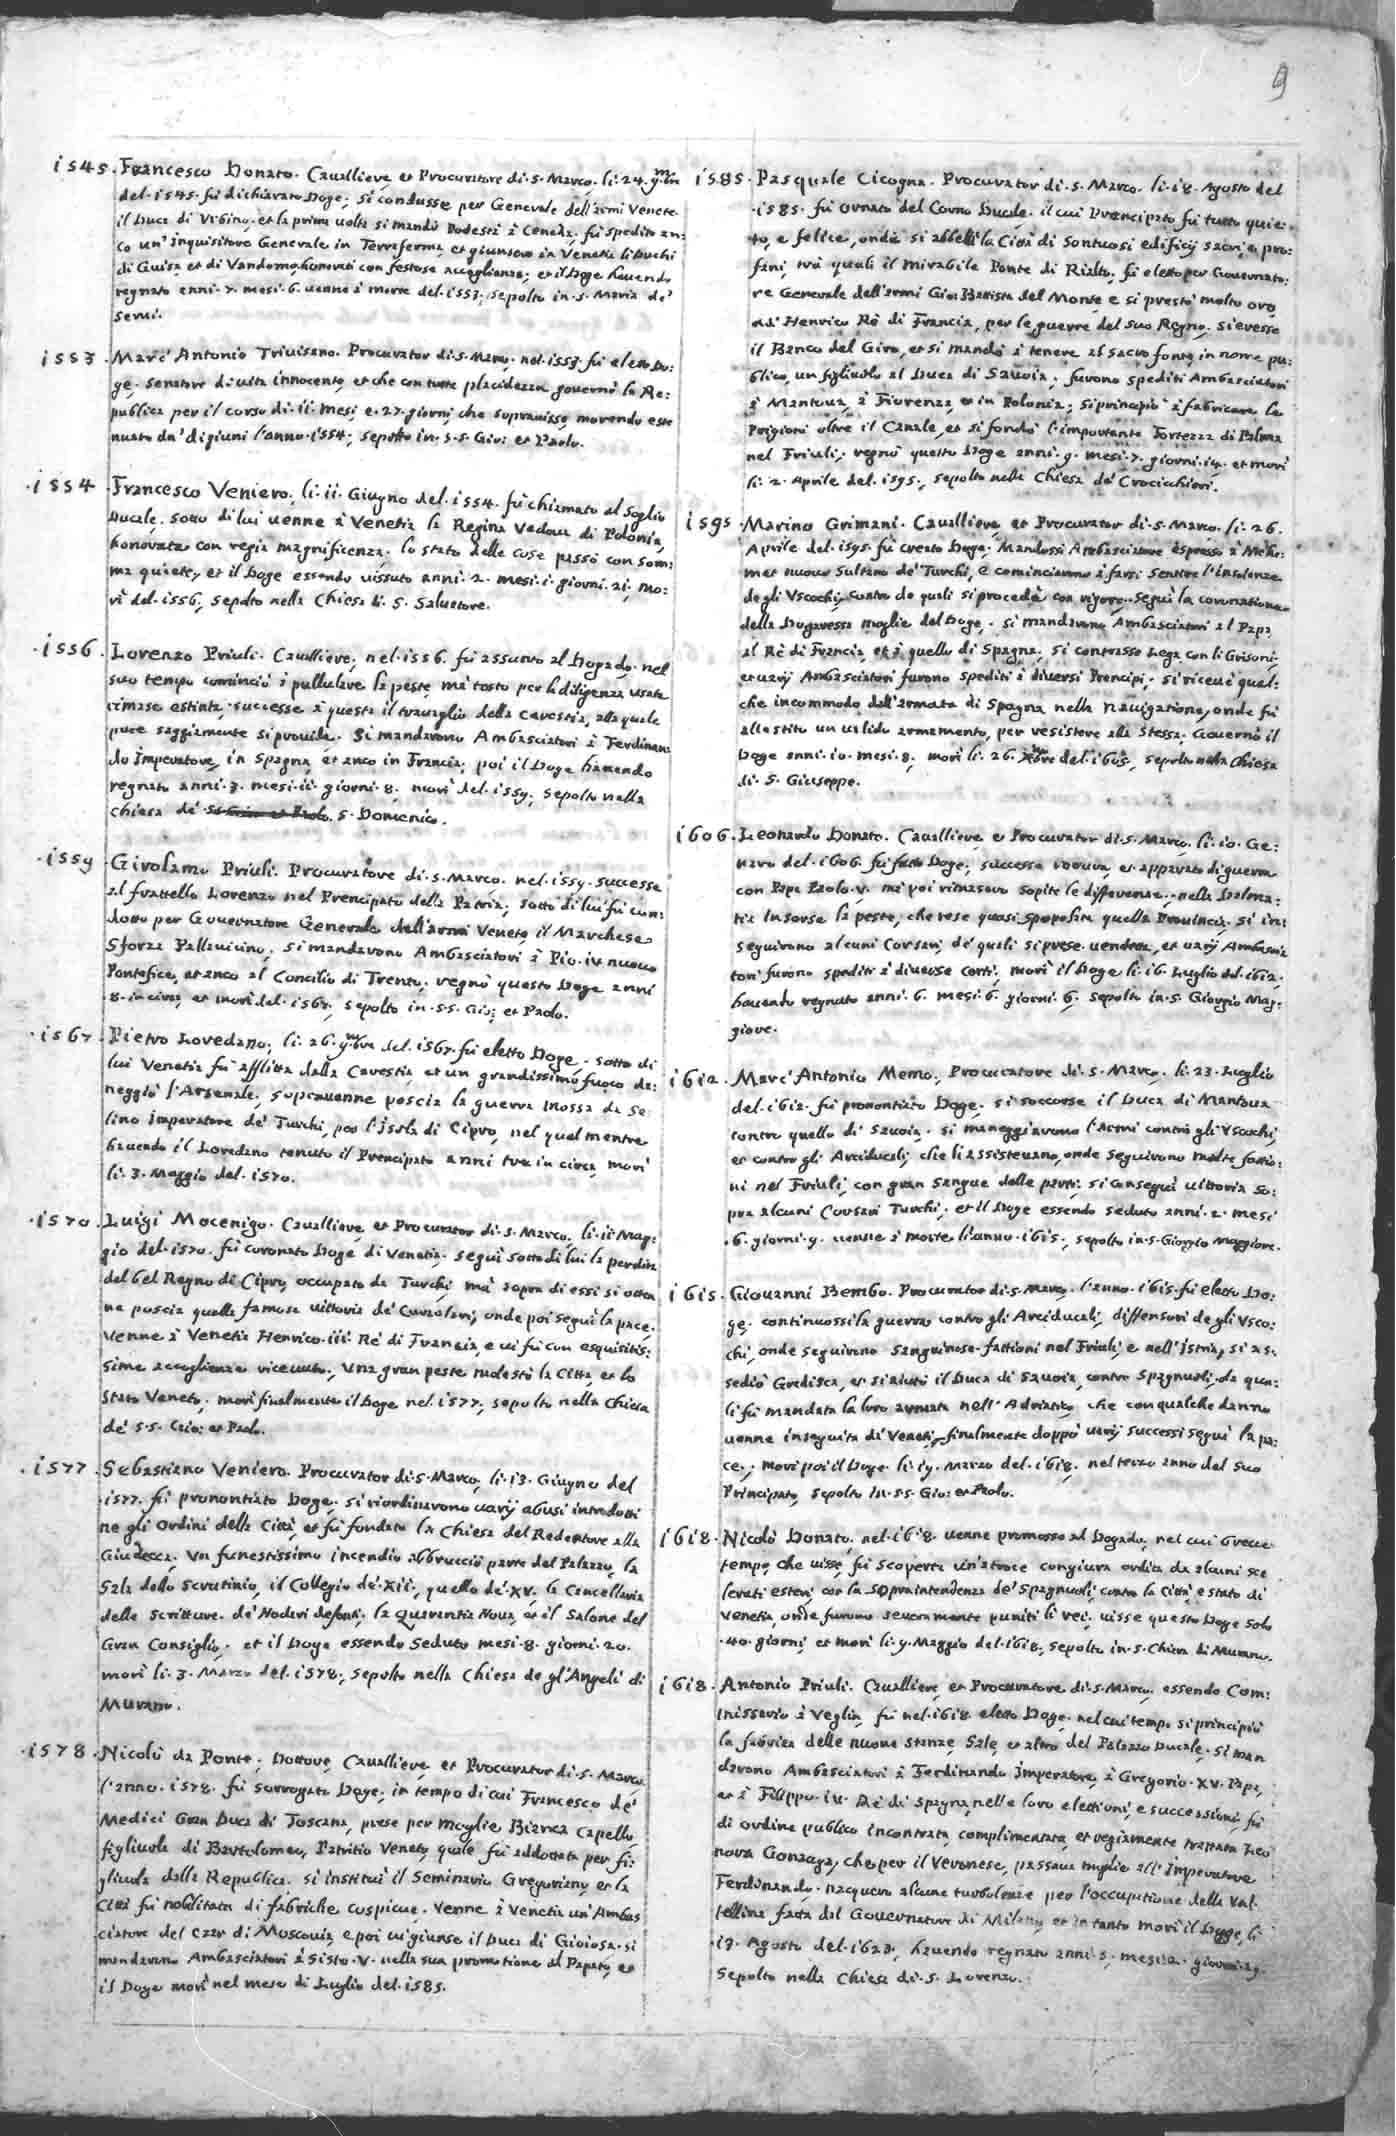 9
1545. Francesco Donato. Cauallieve, et Procuratore di. S. Marco. li. 24. 9.mbre
del. 1545. fù dichiarato Doge; si condusse per Generale dell'armi Venete
il Duca di Vrbino, et la prima uolta si mandò Podestà à Ceneda, fù spedito an:
co un' inquisitore Generale in Terraferma, et giunsero in Venetia li Duchi
di Guisa, et di Vandomo, honorati con festose accoglianze; et il Doge hauendo
regnato anni. 7. mesi. 6. uenne à morte del. 1553; sepolto in. S. Maria de'
Serui.
1553. Marc' Antonio Triuisano. Procurator di. S. Marco. nel. 1553. fù eletto Do:
ge; senatore di uita innocente, et che con tutta placidezza gouernò la Re:
publica per il corso di. 11. mesi, e. 27. giorni, che soprauisse, morendo este
nuato da' digiuni l'anno. 1554; sepolto in. S.S. Gio: et Paolo.
.1554. Francesco Veniero; li. 11. Giugno del. 1554. fù chiamato al Soglio
Ducale, sotto di lui uenne à Venetia la Regina Vedoua di Polonia,
honorata con regia magnificenza. lo stato delle cose passò con som:
ma quiete, et il Doge essendo uissuto anni. 2. mesi. 1. giorni. 21. mo:
rì del. 1556, sepolto nella Chiesa di. S. Saluatore.
.1556. Lorenzo Priuli. Cauallieve, nel. 1556. fù assunto al Dogado, nel
suo tempo cominciò à pullulare la peste, mà tosto per la diligenza usata
rimase estinta; successe à questa il trauaglio della carestia, alla quale
pure saggiamente si prouide. Si mandarono Ambasciatori à Ferdinan
do Imperatore, in Spagna, et anco in Francia; poi il Doge hauendo
regnato anni. 3. mesi. 11. giorni. 8. morì del. 1559; sepolto nella
chiesa de' S.S. Gio: et Paolo. S. Domenico.
.1559. Girolamo Priuli. Procuratore di. S. Marco. nel. 1559. successe
al frattello Lorenzo nel Prencipato della Patria; sotto di lui fù con
dotto per Gouernatore Generale dell'armi Venete, il Marchese
Sforza Pallauicino. si mandarono Ambasciatori à Pio. iv. nuouo
Pontefice, et anco al Concilio di Trento; regnò questo Doge anni
8. in circa, et morì del. 1567, sepolto in. S.S. Gio: et Paolo.
.1567. Pietro Loredano; li. 26. 9.mbre del. 1567. fù eletto Doge, sotto di
lui Venetia fù afflitta dalla Carestia, et un grandissimo fuoco da:
neggiò l'Arsenale, soprauenne poscia la guerra mossa da Se
lino Imperatore de' Turchi, per l'Isola di Cipro, nel qual mentre
hauendo il Loredano tenuto il Prencipato anni tre in circa, morì
li. 3. Maggio del. 1570.
.1570. Luigi Mocenigo. Cauallieve, et Procurator di. S. Marco. li. 11 Mag:
gio del. 1570. fù coronato Doge di Venetia. seguì sotto di lui la perdita
del bel Regno di Cipro, occupato da Turchi, mà sopra di essi si otten
ne poscia quella famosa uittoria de' Curzolari, onde poi seguì la pace.
Venne à Venetia Henrico. iii. Rè di Francia, e ui fù con esquisitis:
sime accoglienze riceuuto. Una gran peste molestò la Città, et lo
Stato Veneto. morì finalmente il Doge nel. 1577., sepolto nella Chiesa
de' S.S. Gio: et Paolo.
.1577. Sebastiano Veniero. Procurator di. S. Marco, li. 13. Giugno del
.1577. fù prononziato Doge; si riordinarono uarij abusi introdotti
ne gli Ordini della Città et fù fondata la Chiesa del Redentore alla
Giudecca. Un funestissimo incendio abbrucciò parte del Palazzo, la
Sala dello Scrutinio, il Collegio de' Xii, quello de' XV. la Cancellaria
delle scritture, de' Nodari defonti, la Quarantia Noua, et il Salone del
Gran Consiglio. et il Doge essendo seduto mesi. 8. giorni. 20.
morì li. 3. Marzo del. 1578, sepolto nella Chiesa de gl'Angeli di
Murano.
.1578. Nicolò da Ponte. Dottore, Cauallieve, et Procurator di. S. Marco,
l'anno. 1578. fù sorrogato Doge, in tempo di cui Francesco de'
Medici Gran Duca di Toscana, prese per moglie Bianca Capello,
figliuola di Bartolomeo, Patritio Veneto, quale fù addottata per fi:
gliuola dalla Republica. si instituì il Seminario Gregoriano, et la
Città fù nobilitata di fabriche cospicue. Venne à Venetia un' Ambas
ciatore del Czar di Moscouia, e poi ui giunse il Duca di Gioiosa. si
mandarono Ambasciatori à Sisto. V. nella sua promotione al Papato, et
il Doge morì nel mese di Luglio del. 1585.
1585. Pasquale Cicogna. Procurator di. S. Marco. li. 18. Agosto del
.1585. fù ornato del Corno Ducale, il cui Prencipato fù tutto quie:
to, e felice, onde si abbellì la Città di sontuosi edificij sacri, e pro:
fani, trà quali il mirabile Ponte di Rialto, fù eletto per Gouernato:
re Generale dell'armi Gio: Battista del Monte, e si prestò molto oro
ad' Henrico Rè di Francia, per le guerre del suo Regno. si eresse
il Banco del Giro, et si mandò à tenere al sacro fonte, in nome pu:
blico, un figliuolo al Duca di Sauoia; furono spediti Ambasciatori
à Mantoua, à Fiorenza, et in Polonia; si principiò à fabricare le
Prigioni oltre il Canale, et si fondò l'importante Fortezza di Palma
nel Friuli; regnò questo Doge anni. 9. mesi. 7. giorni. 14. et morì
li. 2. Aprile del. 1595, sepolto nella Chiesa de' Crocicchieri.
1595. Marino Grimani. Cauallieve, et Procurator di. S. Marco. li. 26.
Aprile del. 1595. fù creato Doge; Mandossi Ambasciatore espresso à Meho:
met nuouo Sultano de' Turchi, e cominciarono à farsi sentire l'insolenze
de gli Vscochi, contro de quali si procedè con rigore. seguì la coronatione
della Dogaressa moglie del Doge. si mandarono Ambasciatori al Papa,
al Rè di Francia, et à quello di Spagna; si contrasse Lega con li Grisoni,
et uarij Ambasciatori furono spediti à diuersi Prencipi; si riceuè qual:
che incommodo dall'armata di Spagna nella nauigatione, onde fù
allestito un ualido armamento, per resistere alla stessa. Gouernò il
Doge anni. 10. mesi. 8, morì li. 26. Xmbre del. 1605, sepolto nella chiesa
di. S. Giuseppe.
1606. Leonardo Donato. Cauallieve, et Procurator di. S. Marco, li. 10. Ge:
naro del. 1606. fù fatto Doge; successe rottura, et apparato di guerra
con Papa Paolo. V. mà poi rimasero sopite le differenze. nella Dalma:
tia insorse la peste, che rese quasi spopolata quella Prouincia. si in:
seguirono alcuni Corsari, de' quali si prese uendetta, et uarij Ambascia
tori furono spediti à diuerse corti; morì il Doge li. 16. Luglio del. 1612.
hauendo regnato anni. 6. mesi. 6. giorni. 6. sepolto in. S. Giorgio Mag:
giore.
1612. Marc' Antonio Memo. Procuratore di. S. Marco. li. 23. Luglio
del. 1612. fù prononziato Doge. si soccorse il Duca di Mantoua
contro quello di Sauoia. si maneggiarono l'Armi contro gli Vscochi,
et contro gli Arciducali, che li assisteuano, onde seguirono molte fattio:
ni nel Friuli, con gran sangue delle parti; si conseguì uittoria so:
pra alcuni Corsari Turchi; et il Doge essendo seduto anni. 2. mesi
.6. giorni. 9. uenne à morte l'anno. 1615, sepolto in. S. Giorgio Maggiore.
1615. Giouanni Bembo. Procurator di. S. Marco. l'anno. 1615. fù eletto Do:
ge. continuossi la guerra contro gli Arciducali, diffensori de gli Vsco:
chi, onde seguirono sanguinose fattioni nel Friuli, e nell'Istria, si as:
sediò Gradisca, et si aiutò il Duca di Sauoia, contro Spagnuoli, da qua:
li fù mandata la loro armata nell' Adriatico, che con qualche danno
uenne inseguita da' Veneti, finalmente doppò uarij successi seguì la pa:
ce; morì poi il Doge li. 19. Marzo del. 1618, nel terzo anno del suo
Principato, sepolto in. S.S. Gio: et Paolo.
1618. Nicolò Donato. nel. 1618. uenne promosso al Dogado, nel cui breue
tempo, che uisse, fù scoperta un'atroce congiura ordita da alcuni sce
lerati esteri, con la sopraintendenza de' Spagnuoli, contro la Città, e stato di
Venetia, onde furono seueramente puniti li rei, uisse questo Doge solo
.40. giorni, et morì li. 9. Maggio del. 1618, sepolto in. S. Chiara di Murano.
1618. Antonio Priuli. Cauallieve, et Procuratore di. S. Marco. essendo Com:
missario à Veglia, fù nel. 1618. eletto Doge. nel cui tempo si principiò
la fabrica delle nuoue stanze, Sale, et altro del Palazzo Ducale. si man
darono Ambasciatori à Ferdinando Imperatore, à Gregorio. XV. Papa,
et à Filippo. iv. Rè di Spagna, nelle loro elettioni, e successioni; fù
di ordine publico incontrata, complimentata, et regiamente trattata Leo
nora Gonzaga, che per il Veronese, passaua moglie all' Imperatore
Ferdinando. nacquero alcune turbolenze per l'occupatione della Val:
tellina fatta dal Gouernatore di Milano, et in tanto morì il Doge, li
.12. Agosto del. 1623, hauendo regnato anni. 5. mesi. 2. giorni.
Sepolto nella Chiesa di. S. Lorenzo.